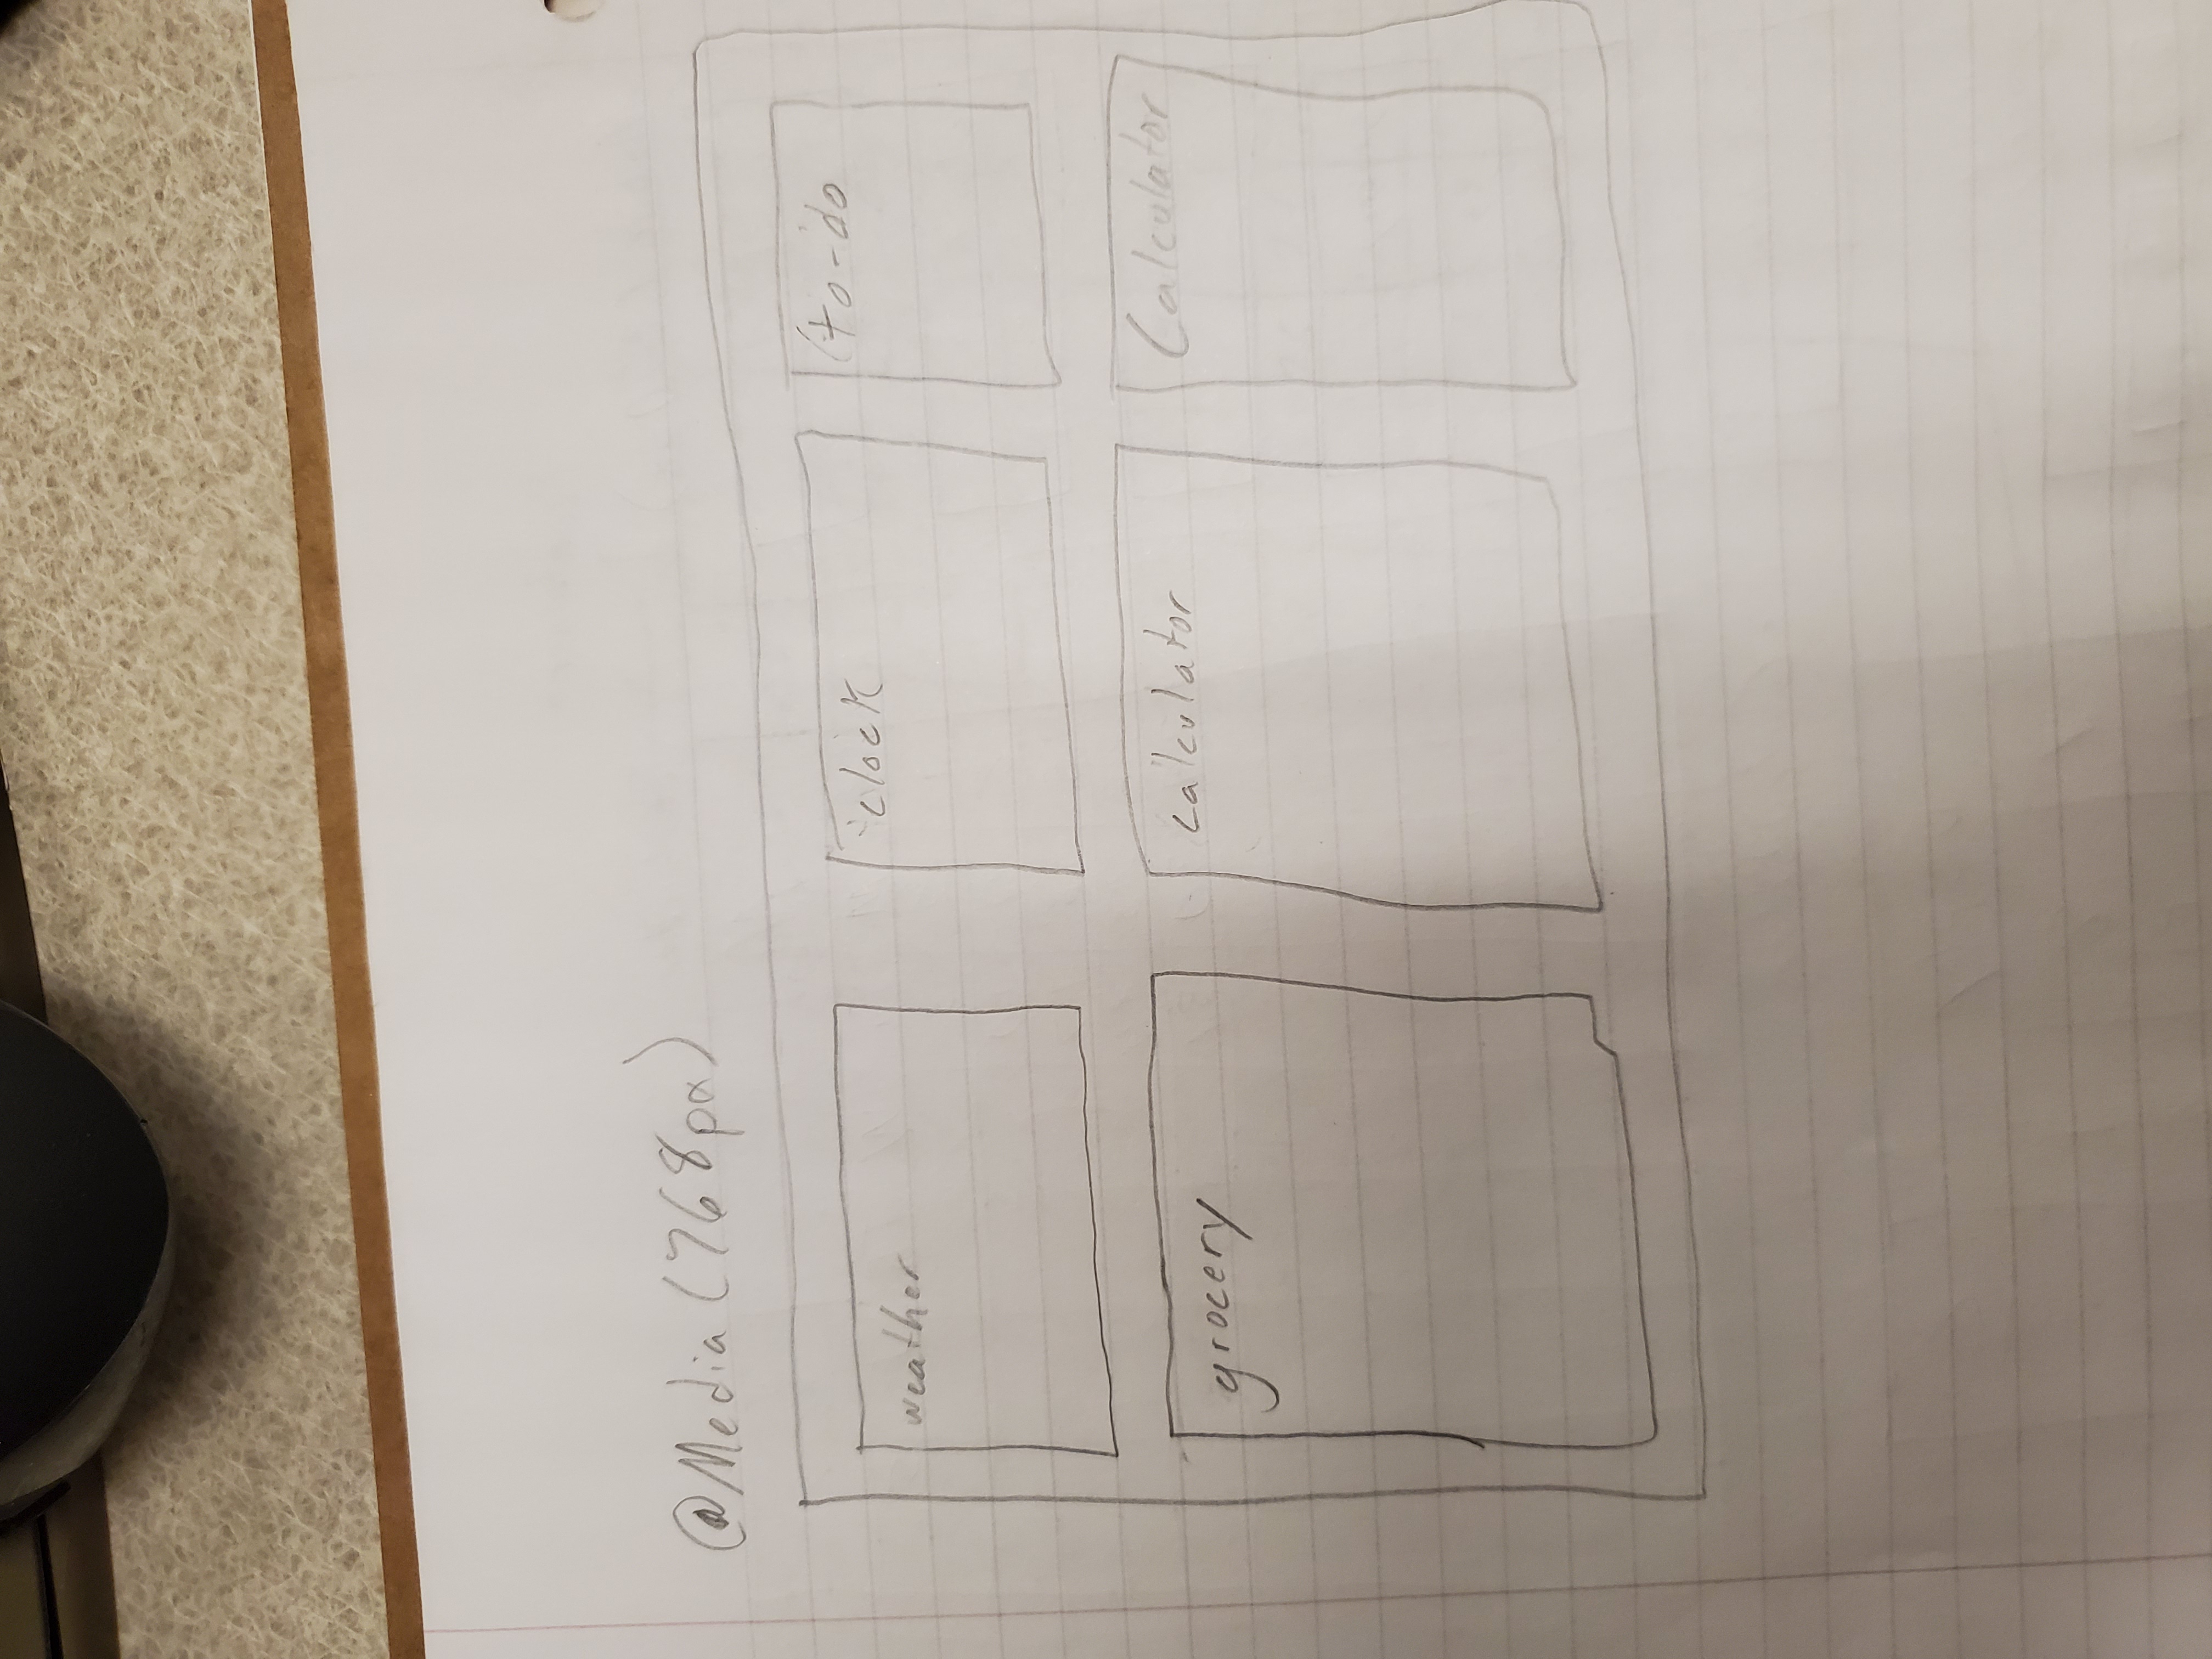 @Media (768px)
weather
clock
to-do
grocery
calculator
Calculator